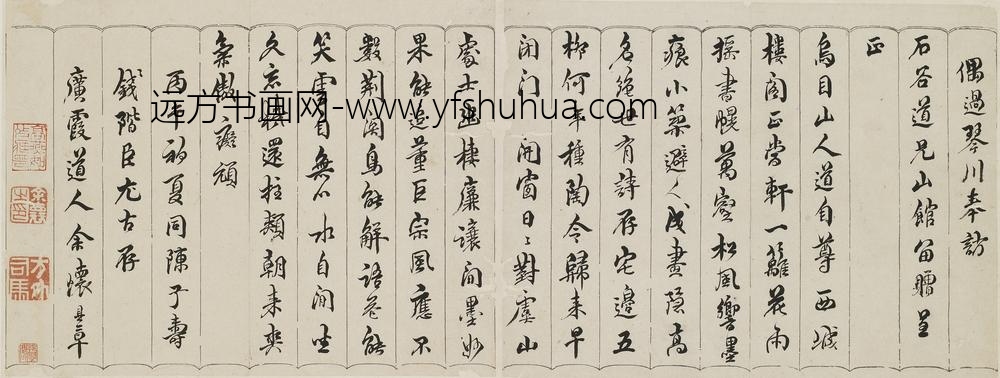 偶過琴川奉訪
石谷道兄山館留贈呈
正
烏目山人道自尊西城
樓閣正當軒一簾花雨
搖書幌萬壑松風響墨
痕小築避人成畫隱高
名絕世有詩存宅邊五
柳何年種陶令歸來早
閉門 開窗日〻對虞山
處士幽棲廉讓間墨妙
果能追董巨宗風應不
數荊關鳥能解語花能
笑雲自無心水自閒坐
久忘機還拄頰朝來爽
氣
丙午初夏同陳子壽
錢階臣尤古存
廣霞道人余懷具草
远方书画网-www.yfshuhua.com